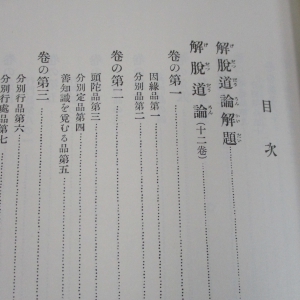 目次
解脱道論解題
解脱道論（十二卷）
卷の第一
因緣品第一
分別品第二
卷の第二
頭陀品第三
分別定品第四
善知識を覓むる品第五
卷の第三
分別行品第六
分別行處品第七